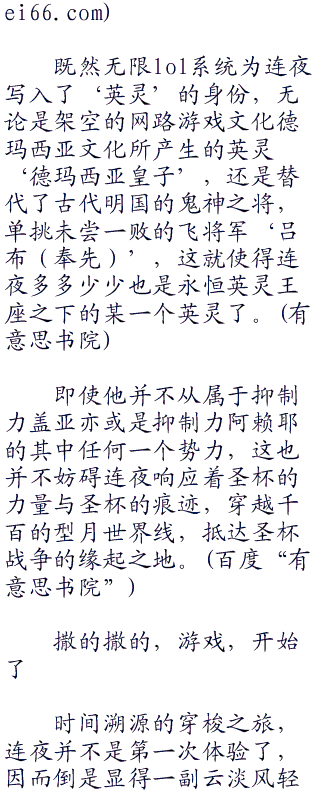 ei66.com)
既然无限lol系统为连夜
写入了‘英灵’的身份，无
论是架空的网路游戏文化德
玛西亚文化所产生的英灵
‘德玛西亚皇子’，还是替
代了古代明国的鬼神之将，
单挑未尝一败的飞将军‘吕
布（奉先）’，这就使得连
夜多多少少也是永恒英灵王
座之下的某一个英灵了。(有
意思书院)
即使他并不从属于抑制
力盖亚亦或是抑制力阿赖耶
的其中任何一个势力，这也
并不妨碍连夜响应着圣杯的
力量与圣杯的痕迹，穿越千
百的型月世界线，抵达圣杯
战争的缘起之地。(百度“有
意思书院”)
撒的撒的，游戏，开始
了
时间溯源的穿梭之旅，
连夜并不是第一次体验了，
因而倒是显得一副云淡风轻